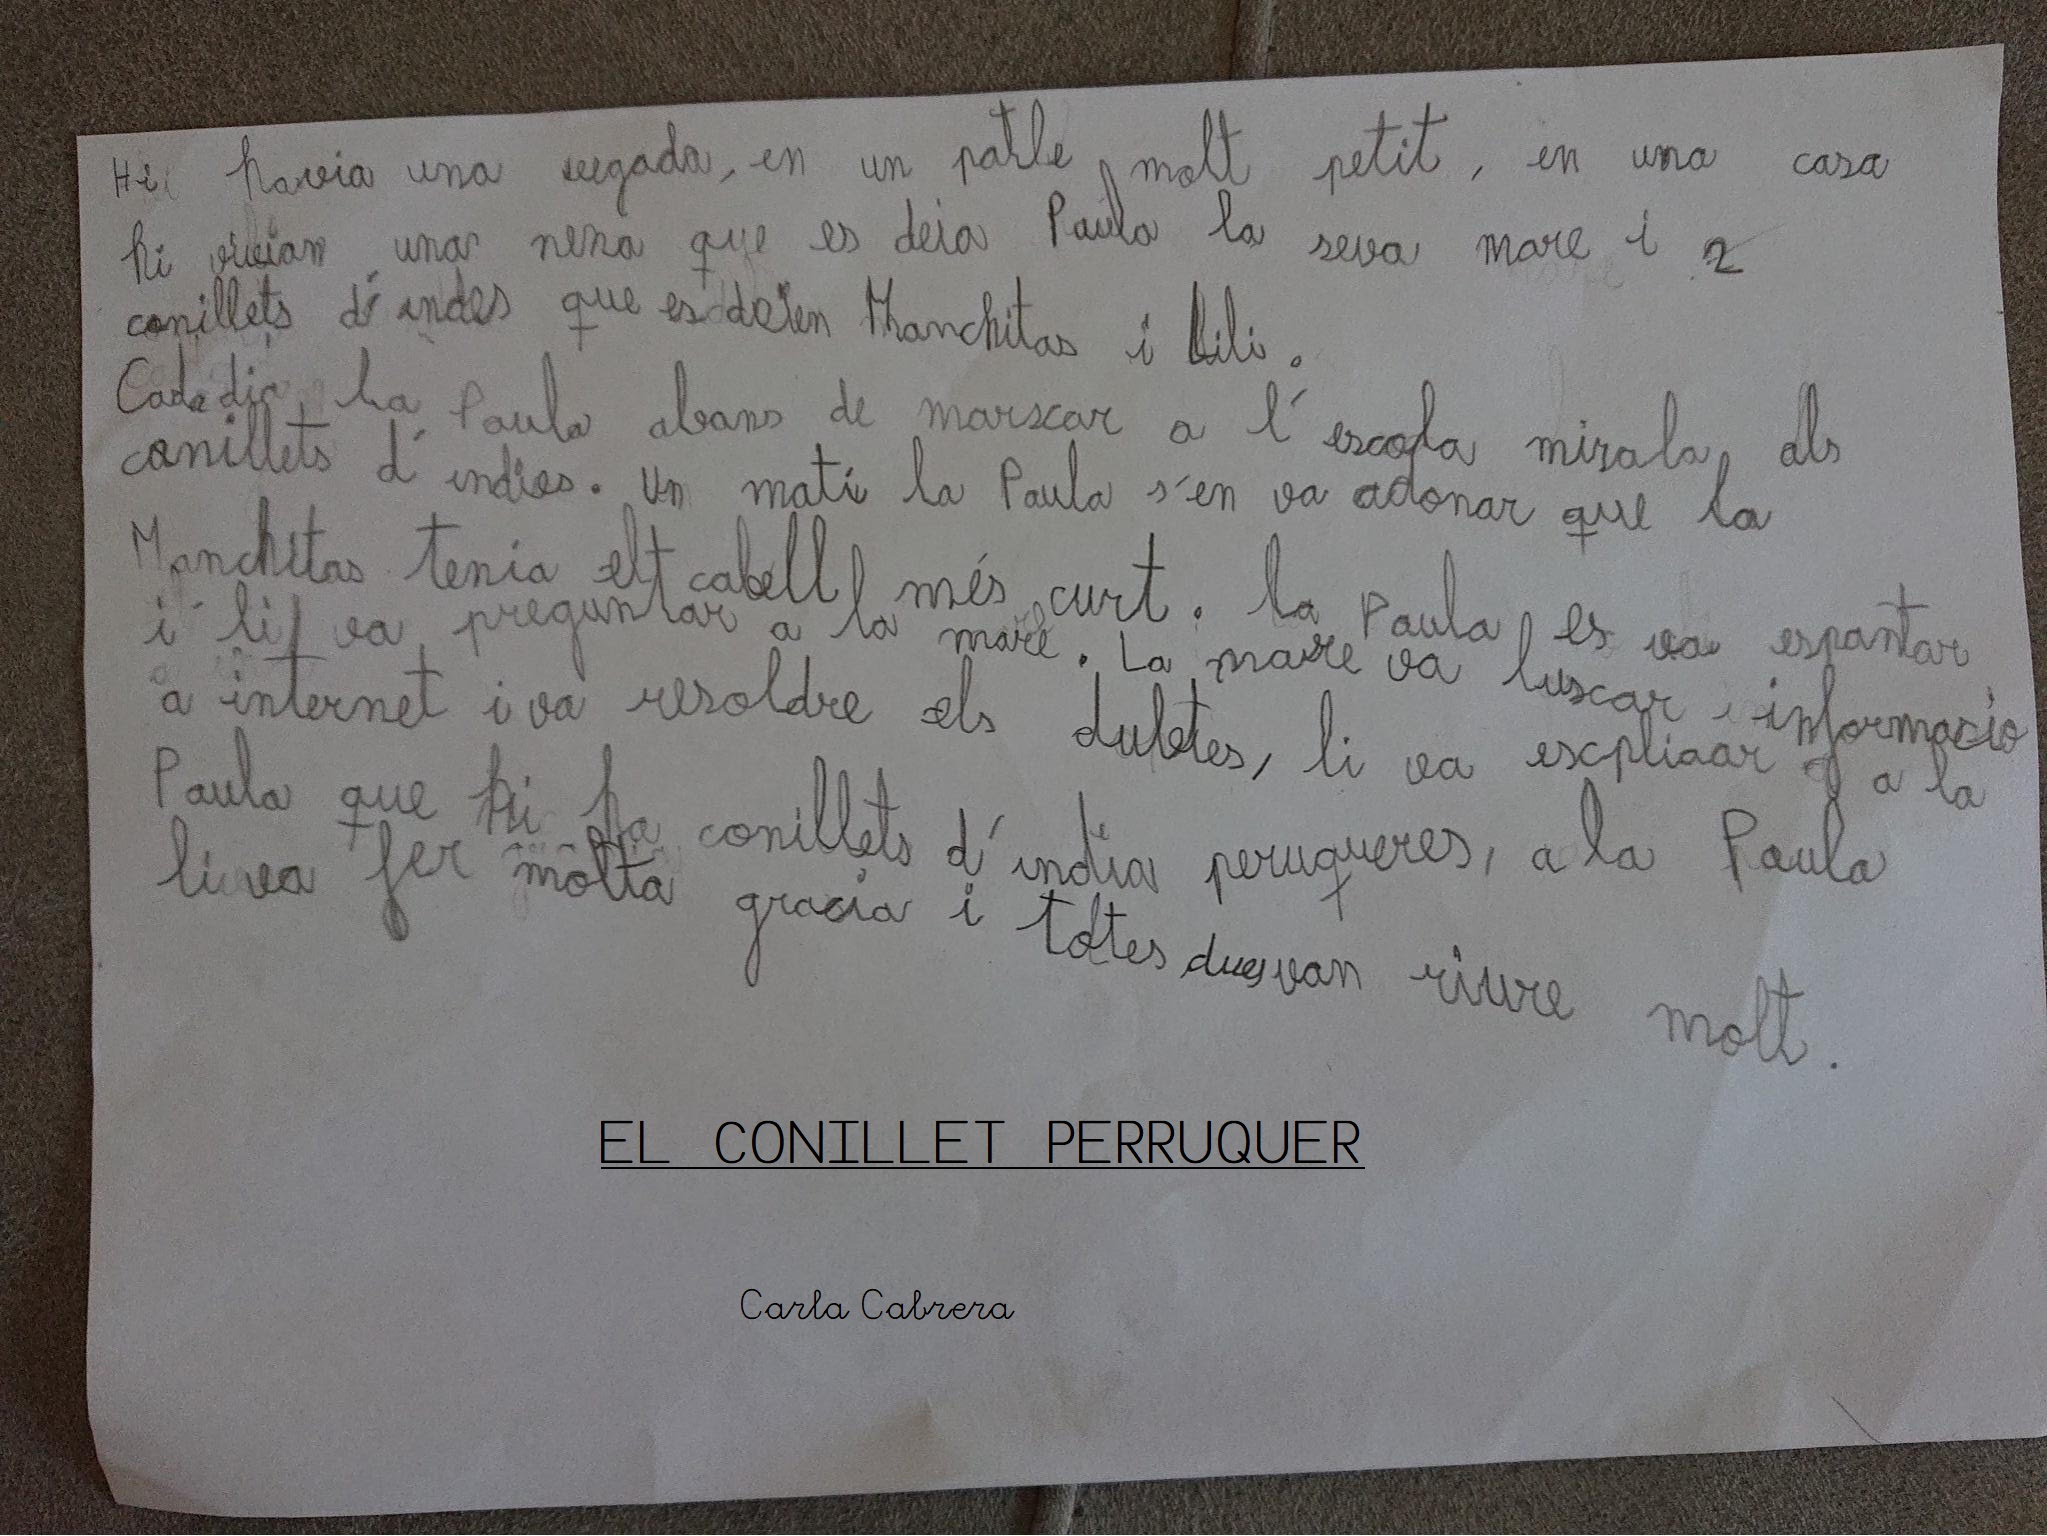 Hi havia una vegada, en un poble molt petit, en una casa
hi vivian una nena que es deia Paula la seva mare i 2
conillets d'indes que es deien Manchitas i Lili.
Cada dia La Paula abans de marxar a l'escola mirala als
conillets d'indies. Un matí la Paula s'en va adonar que la
Manchitas tenia el cabell més curt. La Paula es va espantar
i li va preguntar a la mare. La mare va buscar informacio
a internet i va resoldre els dubtes, li va escpliaar a la
Paula que hi ha conillets d'india peruqueres, a la Paula
li va fer molta gracia i totes dues van riure molt.
EL CONILLET PERRUQUER
Carla Cabrera